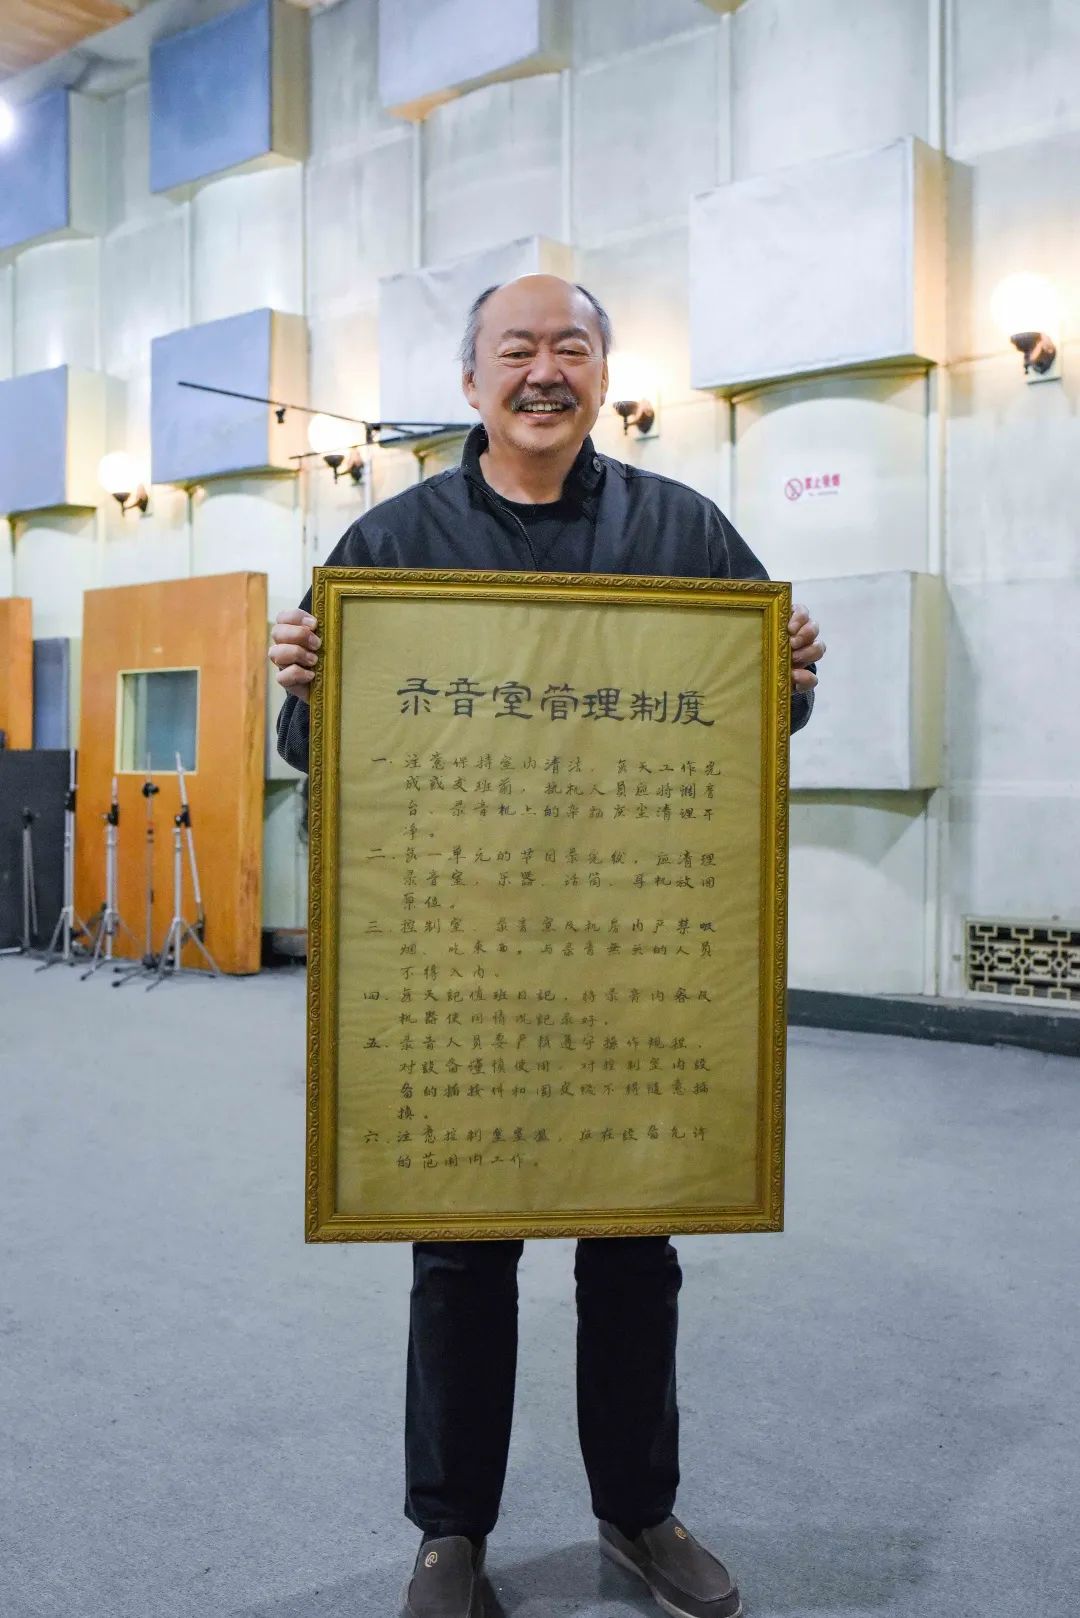 禁止吸烟
录音室管理制度
一.注意保持室内清洁,每天工作完
成或交班前,执机人员应将调音
台、录音机上的杂物灰尘清理干
净。
二.每一单元的节目录完后,应清理
录音室,乐器、话筒、耳机放回
原位。
三.控制室、录音室及机房内严禁吸
烟、吃東西。与录音無关的人员
不得入内。
四.每天記值班日記,将录音内容及
机器使用情况記录好。
五.录音人员要严格遵守操作规程,
对設备谨慎使用。对控制室内設
备的插接件和固定线不得随意插
换。
六.注意控制室室温,应在设备允许
的范围内工作。